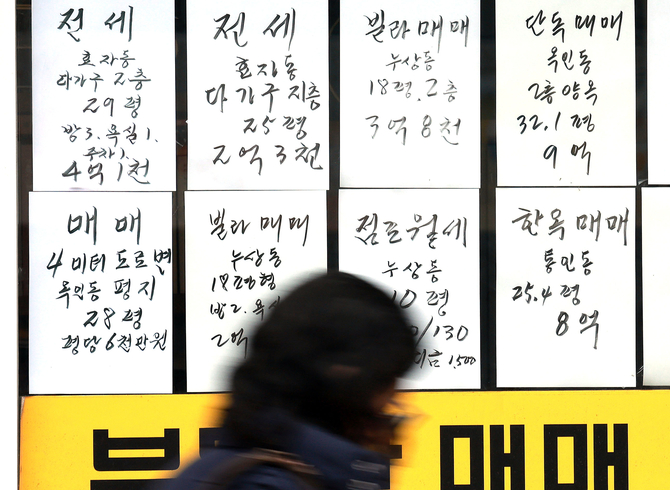 전세
효자동
다가구 2층
29평
방3. 욕실1.
주차1.
4억1천
전세
효자동
다가구 지층
25평
2억3천
빌라매매
누상동
18평. 2층
3억8천
단독매매
옥인동
2층양옥
32.1평
9억
매매
4미터 도로변
옥인동 평지
28평
평당 6천만원
빌라매매
누상동
18평형
방2. 욕
2억
점포월세
누상동
10평
/130
금 1,500
한옥매매
통인동
25.4평
8억
부 매매